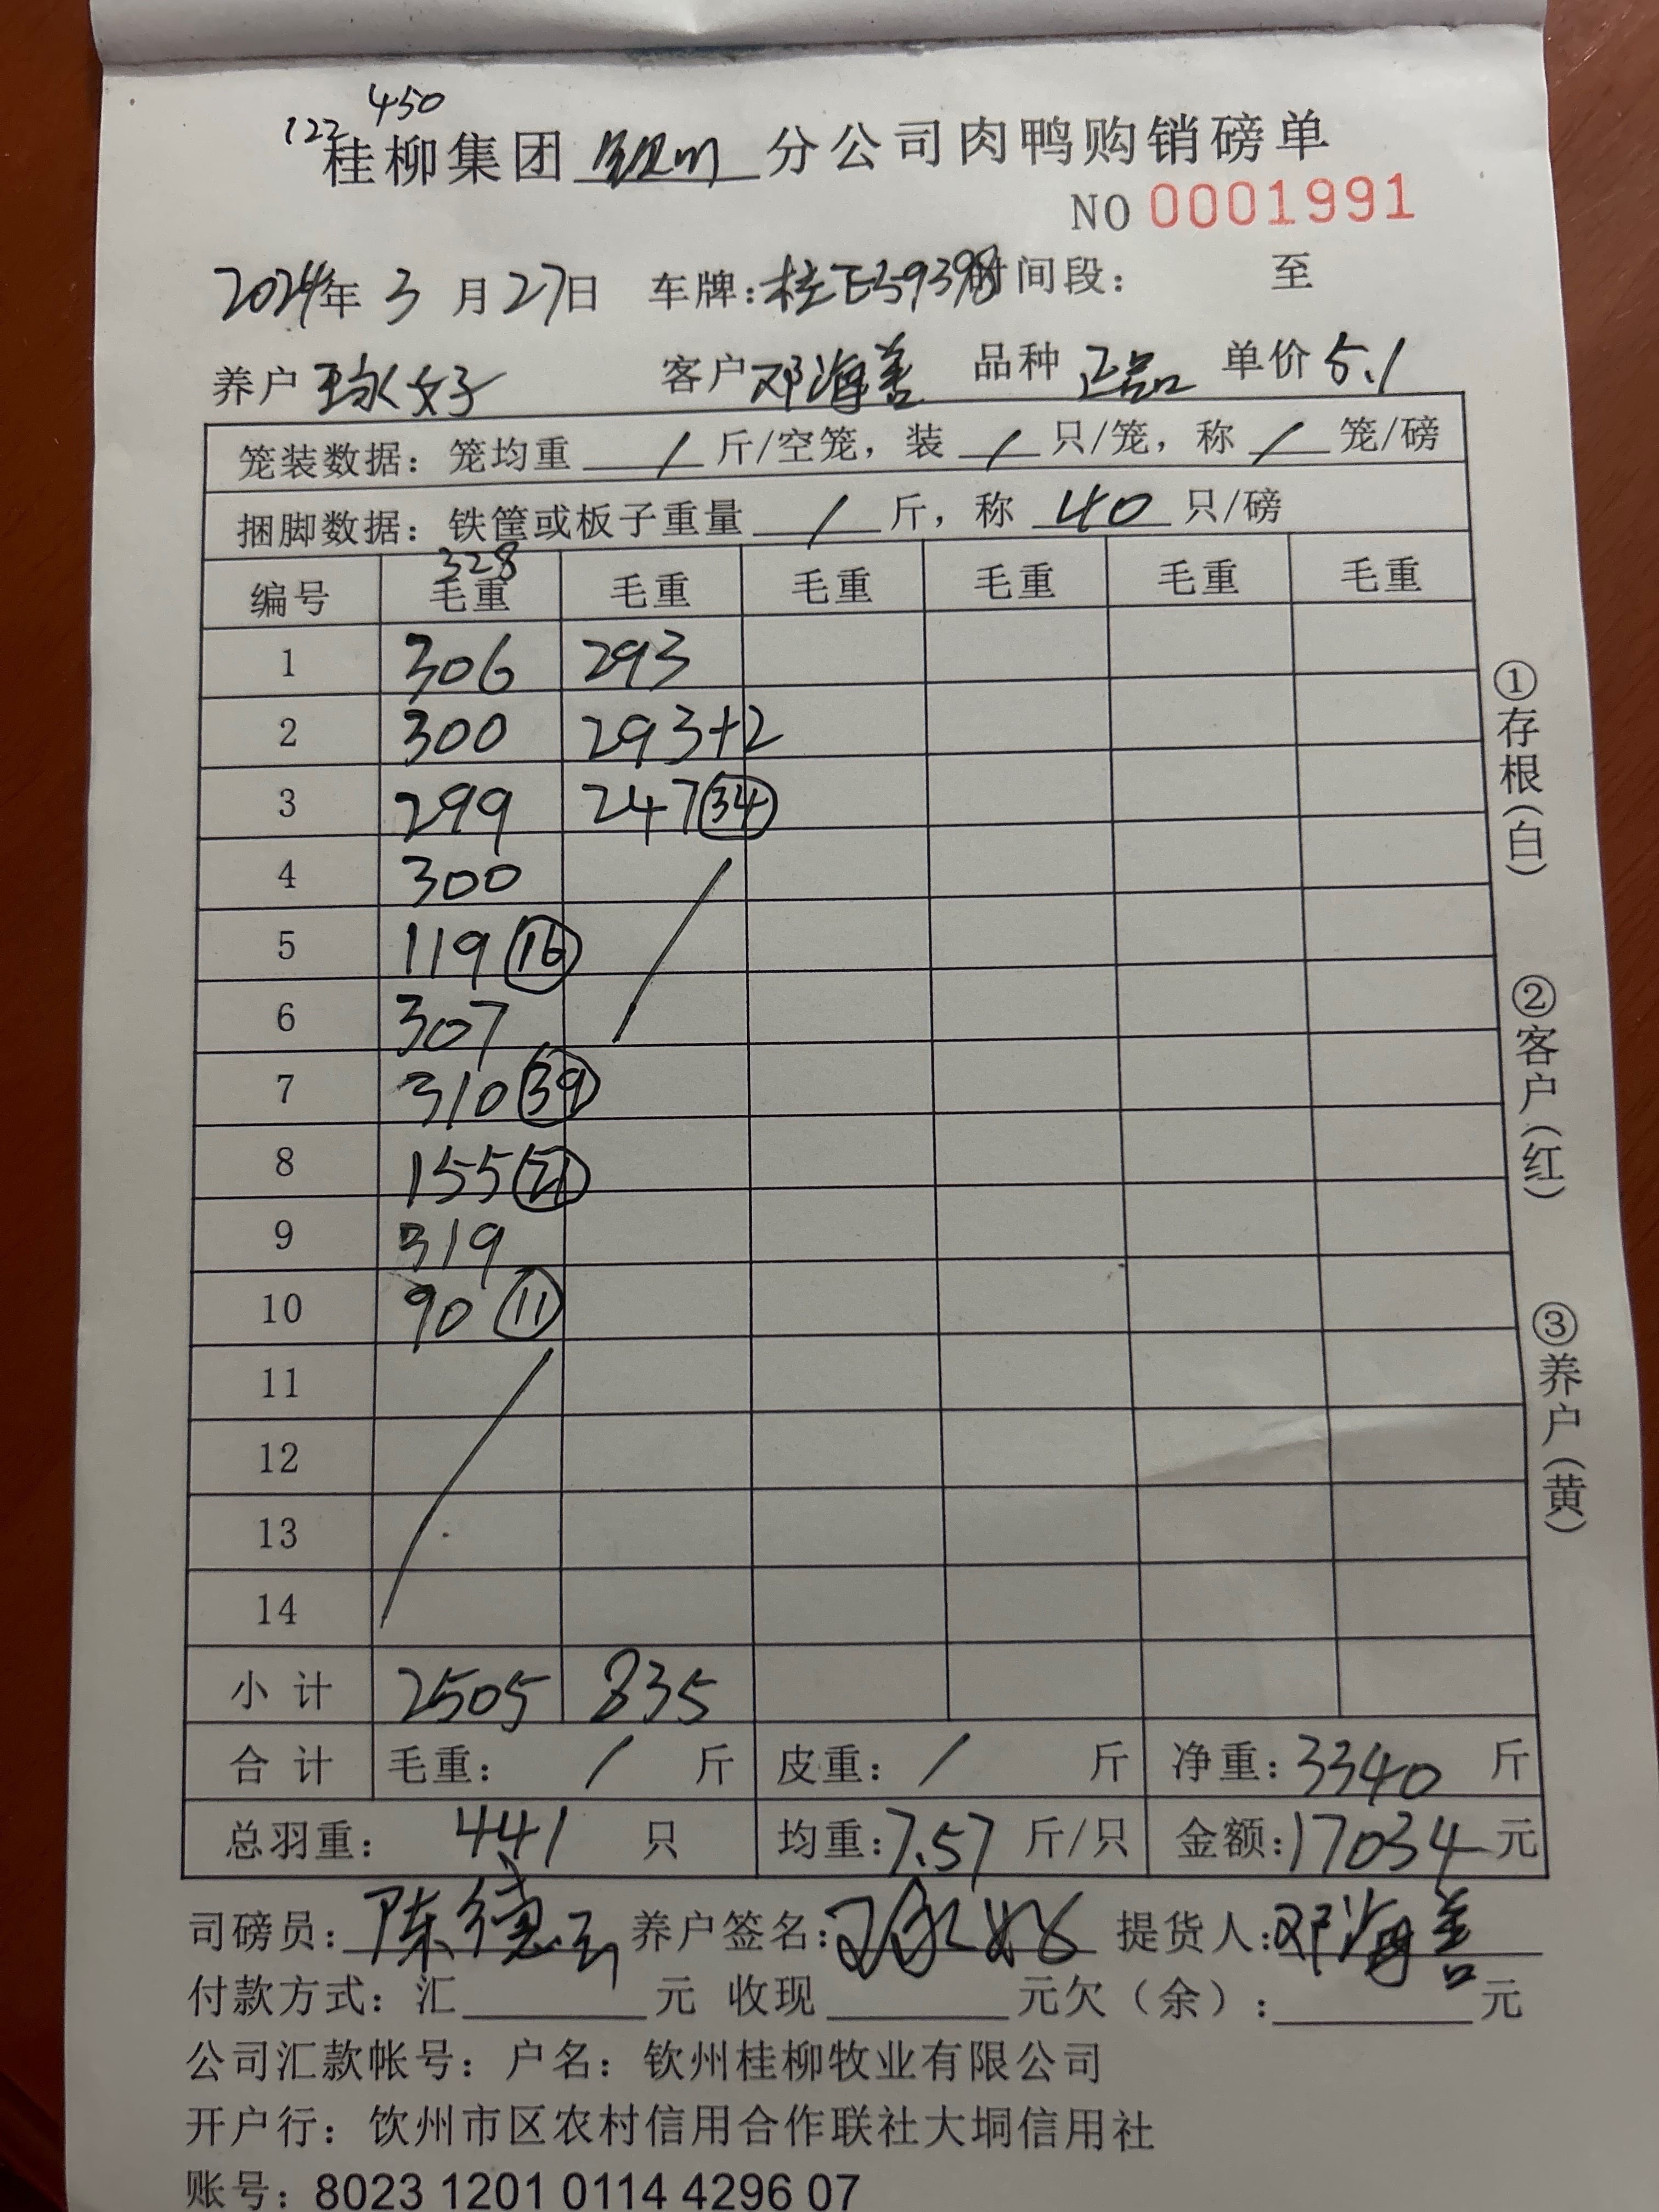 450
122
桂柳集团 钦州 分公司肉鸭购销磅单
NO 0001991
2024年 3 月 27日 车牌:桂E59398 时间段: 至
养户 客户 邓海善 品种 正品 单价 5.1
笼装数据: 笼均重 / 斤/空笼, 装 / 只/笼, 称 / 笼/磅
捆脚数据: 铁筐或板子重量 / 斤, 称 40 只/磅
328
编号 毛重 毛重 毛重 毛重 毛重 毛重
1 306 293
2 300 293+2
3 299 247 34
4 300
5 119 16
6 307
7 310 39
8 155 21
9 319
10 90 11
11
12
13
14
小计 2505 835
合计 毛重: / 斤 皮重: / 斤 净重: 3340 斤
总羽重: 441 只 均重: 7.57 斤/只 金额: 17034 元
司磅员: 陈德云 养户签名: 提货人: 邓海善
付款方式: 汇 元 收现 元欠(余): 元
公司汇款帐号: 户名: 钦州桂柳牧业有限公司
开户行: 饮州市区农村信用合作联社大垌信用社
账号: 8023 1201 0114 4296 07
①存根(白)
②客户(红)
③养户(黄)